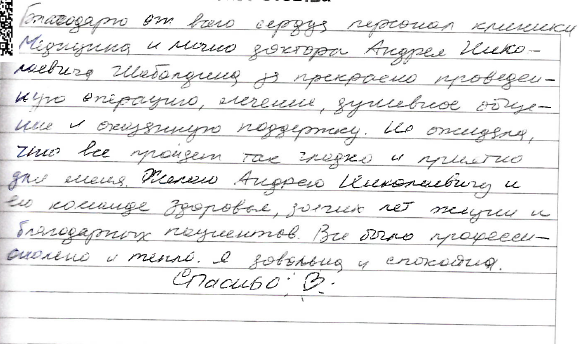 Благодарю от всего сердца персонал клиники
Медицина и лично доктора Андрея Нико-
лаевича Шебалдина за прекрасно проведен-
ную операцию, лечение, душевное обще-
ние и оказанную поддержку. Не ожидала,
что все пройдет так гладко и приятно
для меня. Желаю Андрею Николаевичу и
его команде здоровья, долгих лет жизни и
благодарных пациентов. Все было професси-
онально и тепло. Я довольна и спокойна.
Спасибо!